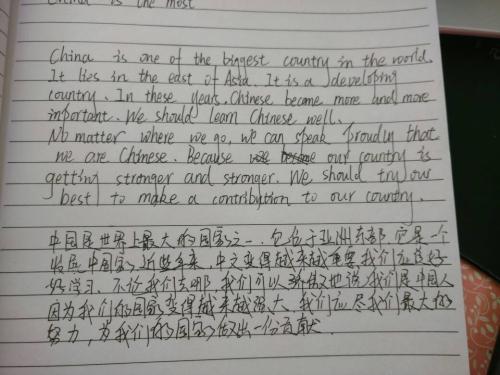 China is the most
China is one of the biggest country in the world.
It lies in the east of Asia. It is a developing
country. In these years, Chinese became more and more
important. We should learn Chinese well.
No matter where we go, we can speak proudly that
we are Chinese. Because our country is
getting stronger and stronger. We should try our
best to make a contribution to our country.
中国是世界上最大的国家之一.它位于亚洲东部.它是一个
发展中国家,近些年来,中文变得越来越重要,我们应该好
好学习.不论我们去哪,我们可以骄傲地说,我们是中国人
因为我们的国家变得越来越强大,我们应尽我们最大的
努力,为我们的国家做出一份贡献.